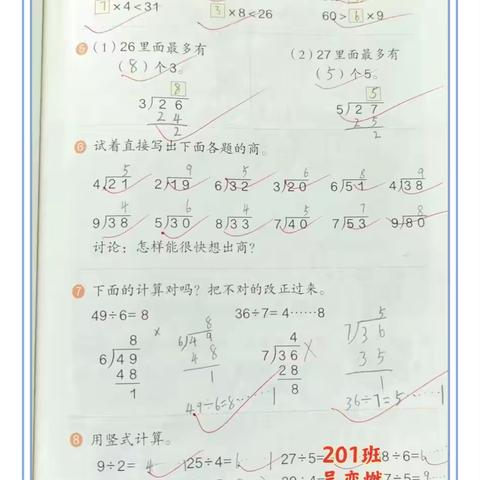 7 ×4<31 3 ×8<26 60> 6 ×9
5 (1) 26里面最多有 (2) 27里面最多有
(8)个3。 (5)个5。
8 5
3)26 5)27
24 25
2 2
6 试着直接写出下面各题的商。
5 9 5 6 8 9
4)21 2)19 6)32 3)20 6)51 4)38
4 6 4 5 7 8
9)38 5)30 8)33 7)40 7)53 9)80
讨论:怎样能很快想出商?
7 下面的计算对吗?把不对的改正过来。
49÷6=8 36÷7=4……8
8 × 8 4 × 5
6)49 6)49 7)36 7)36
48 48 28 35
1 1 8 1
49÷6=8……1 36÷7=5……1
8 用竖式计算。
9÷2=4…1 25÷4=6…1 27÷5= 8÷6=
201班
7÷5=